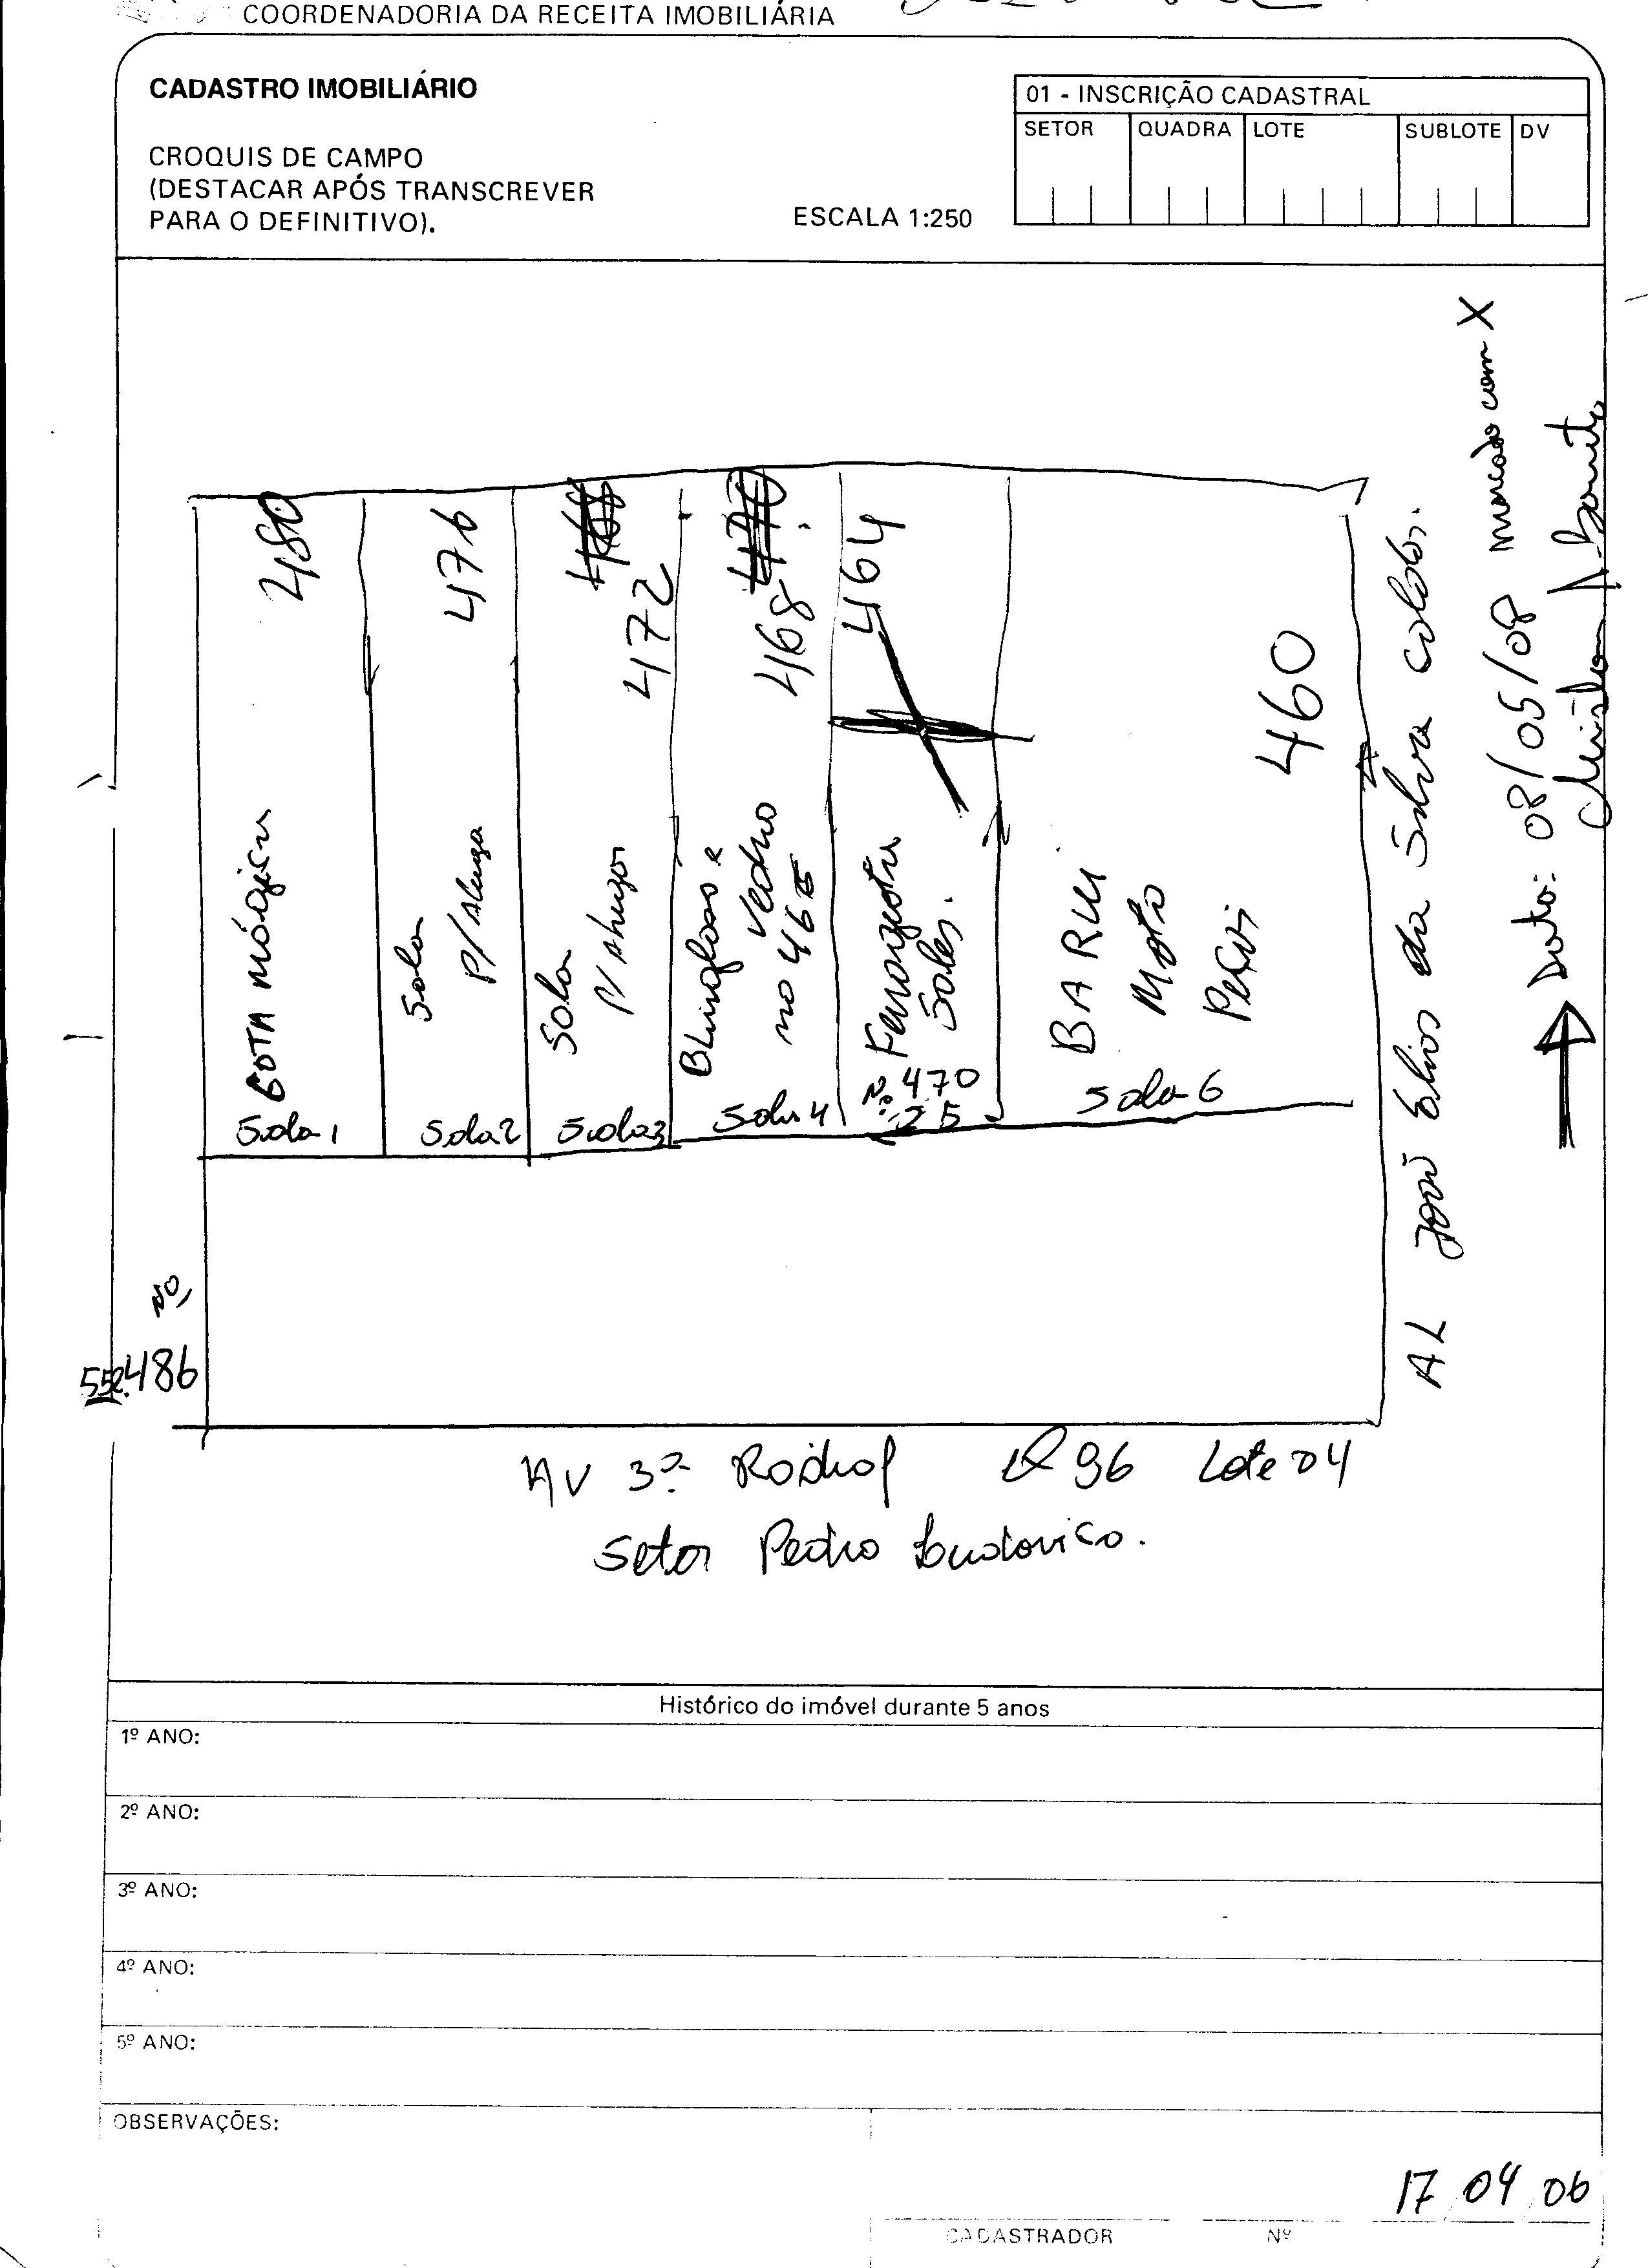 COORDENADORIA DA RECEITA IMOBILIÁRIA
CADASTRO IMOBILIÁRIO
CROQUIS DE CAMPO
(DESTACAR APÓS TRANSCREVER
PARA O DEFINITIVO).
ESCALA 1:250
01 - INSCRIÇÃO CADASTRAL
SETOR QUADRA LOTE SUBLOTE DV
480
GOTA MÁGICA
Sala 1
476
Sala
P/ Aluga
Sala 2
468
472
Sala
P/ Alugar
Sala 3
470
468
Vedro
no 466
Sala 4
464
Sales.
Nº 470
25
460
BARU
Moto
Peças
Sala 6
AL João Elias da Silva Caldas.
marcado com X
Data: 08/05/08
Nº
552 486
AV 3ª Radial Q 96 Lote 04
Setor Pedro Ludovico.
Histórico do imóvel durante 5 anos
1º ANO:
2º ANO:
3º ANO:
4º ANO:
5º ANO:
OBSERVAÇÕES:
17 04 06
CADASTRADOR Nº